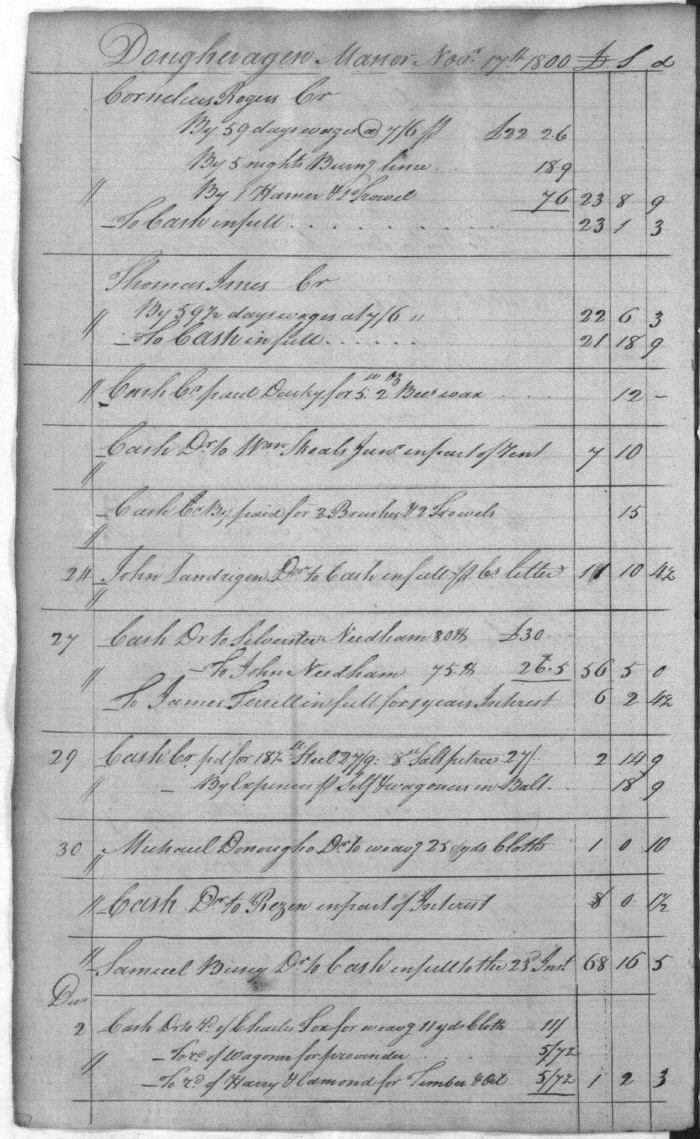 Doughoragen Manor Novr. 17th. 1800 £ S d
Cornelius Rogers Cr
By 59 days wages @ 7/6 pr £22 2 6
By 5 nights Burng lime . . 18 9
By 1 Hamer & 1 Trowel 7 6 23 8 9
" To Cash in full . . . . . . . . . 23 1 3
Thomas Imes Cr
" By 59½ days wages at 7/6 " 22 6 3
To Cash in full . . . . . . 21 18 9
" Cash Cr paid Dasky for 5 lb 2 oz Bees wax . . . . 12 –
Cash Dr to Wm Sheals Junr in part of rent 7 10
"
Cash Cr By paid for 2 Brushes & 2 Trowels 15
"
24 John Landrigen Dr to Cash in full pr Cs letter 11 10 4½
"
27 Cash Dr to Silvester Needham 80 lb £30
" To John Needham 75 lb 26.5 56 5 0
To James Terrell in full for 1 years Interest 6 2 4½
29 Cash Cr pd for 18½ lb Steel 27/9. 8 lb Saltpetree 27/. 2 14 9
" – By Expences pr Self & wagoner in Balt . . 18 9
30 Michael Donougho Dr to weavg 25 yds Cloth 1 0 10
"
" Cash Dr to Rezen in part of Interest 8 0 1½
" Samuel Busey Dr to Cash in full to the 23d Inst 68 16 5
Decr
2 Cash Dr to rd of Charles Fox for weavg 11 yds Cloth 11/
" To rd of Wagoner for provinder . . . . 5/7½
To rd of Harry & Edmond for Timber & Oil 5/7½ 1 2 3